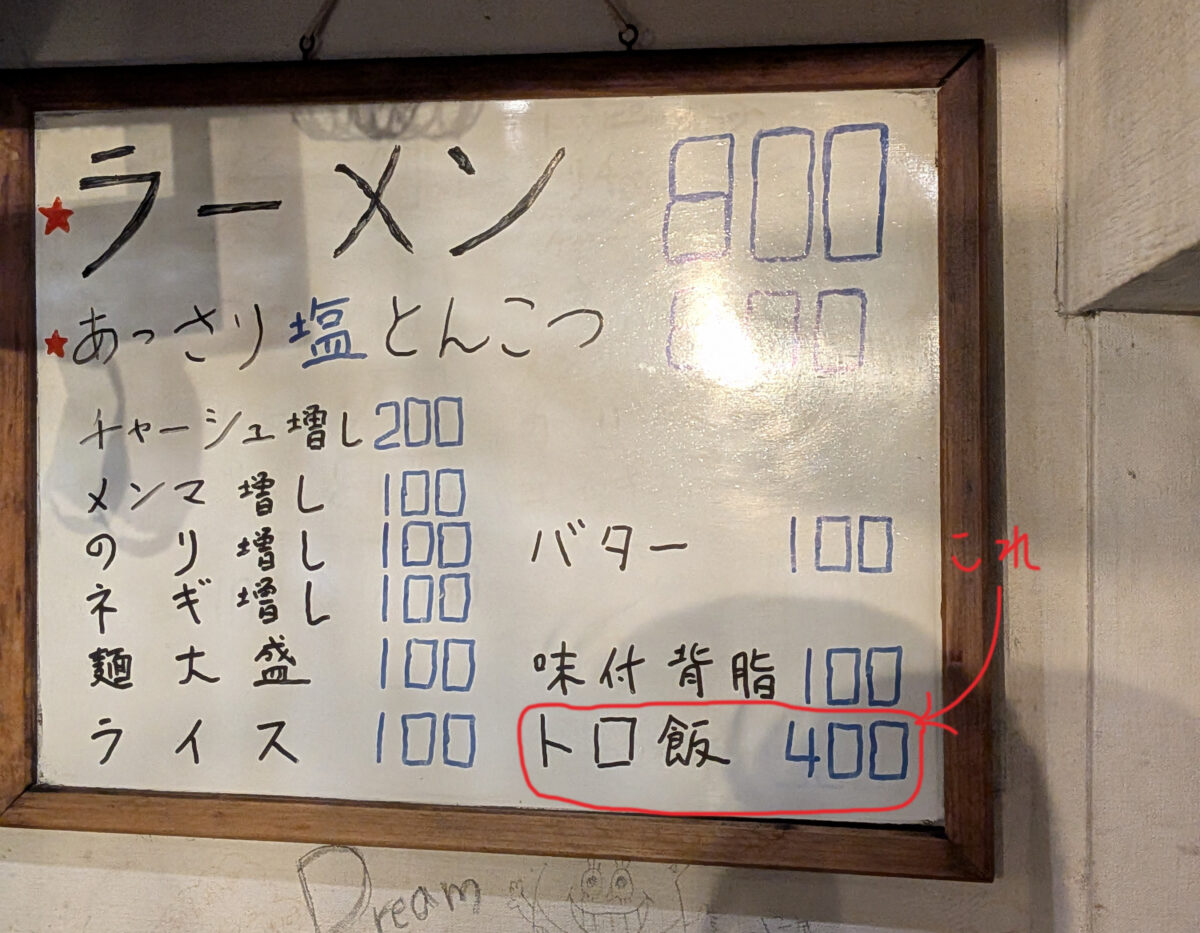 ★ラーメン 800
★あっさり塩とんこつ
チャーシュー増し 200
メンマ増し 100
のり増し 100
ネギ増し 100
麺大盛 100
ライス 100
バター 100
味付背脂 100
トロ飯 400
これ
Dream